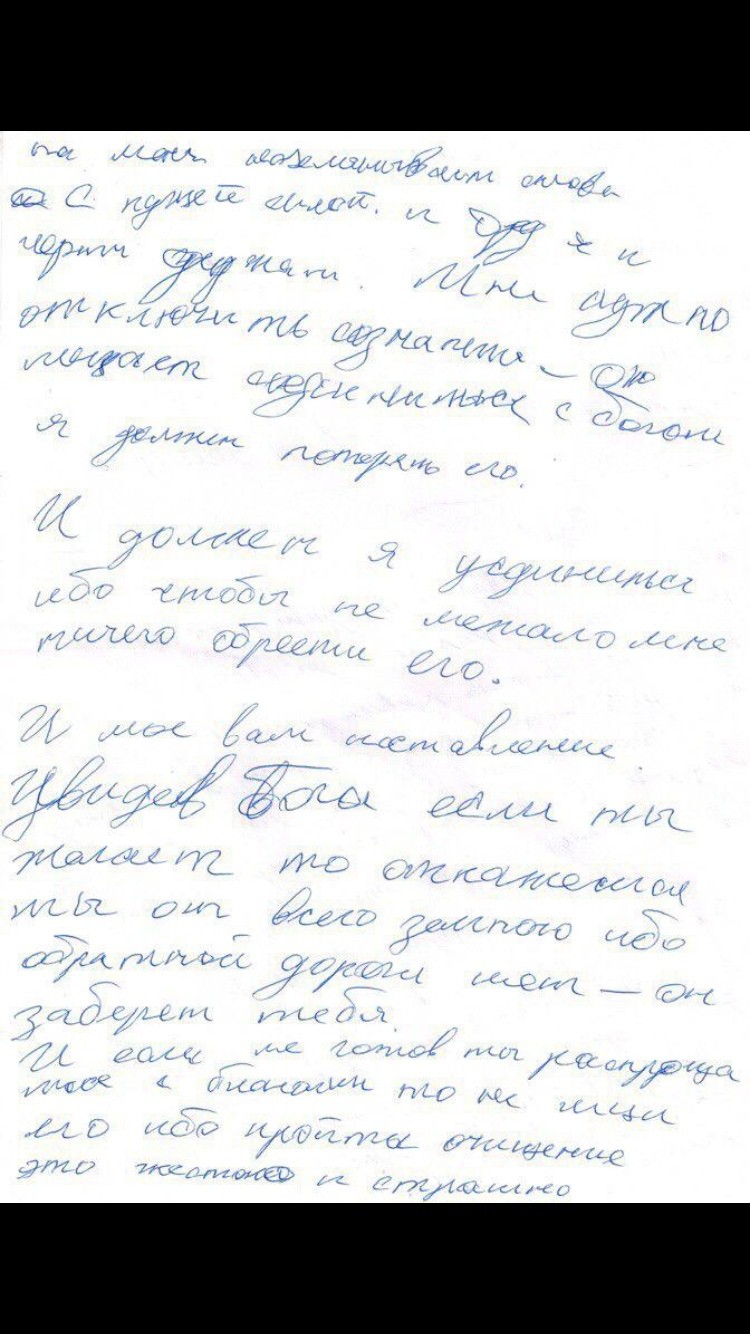 на меня снова
С пущей силой. и Орд я и
черти держат. Мне нужно
отключить сознание — оно
мешает соединиться с богом
я должен потерять его.
И должен я уединиться
ибо чтобы не мешало мне
ничего обрести его.
И мое вам наставление
Увидев Бога если ты
желает то откажешься
ты от всего земного ибо
обратной дороги нет — он
заберет тебя
И если не готов ты распроща
ться с благами то не ищи
его ибо пройти очищение
это жестоко и страшно